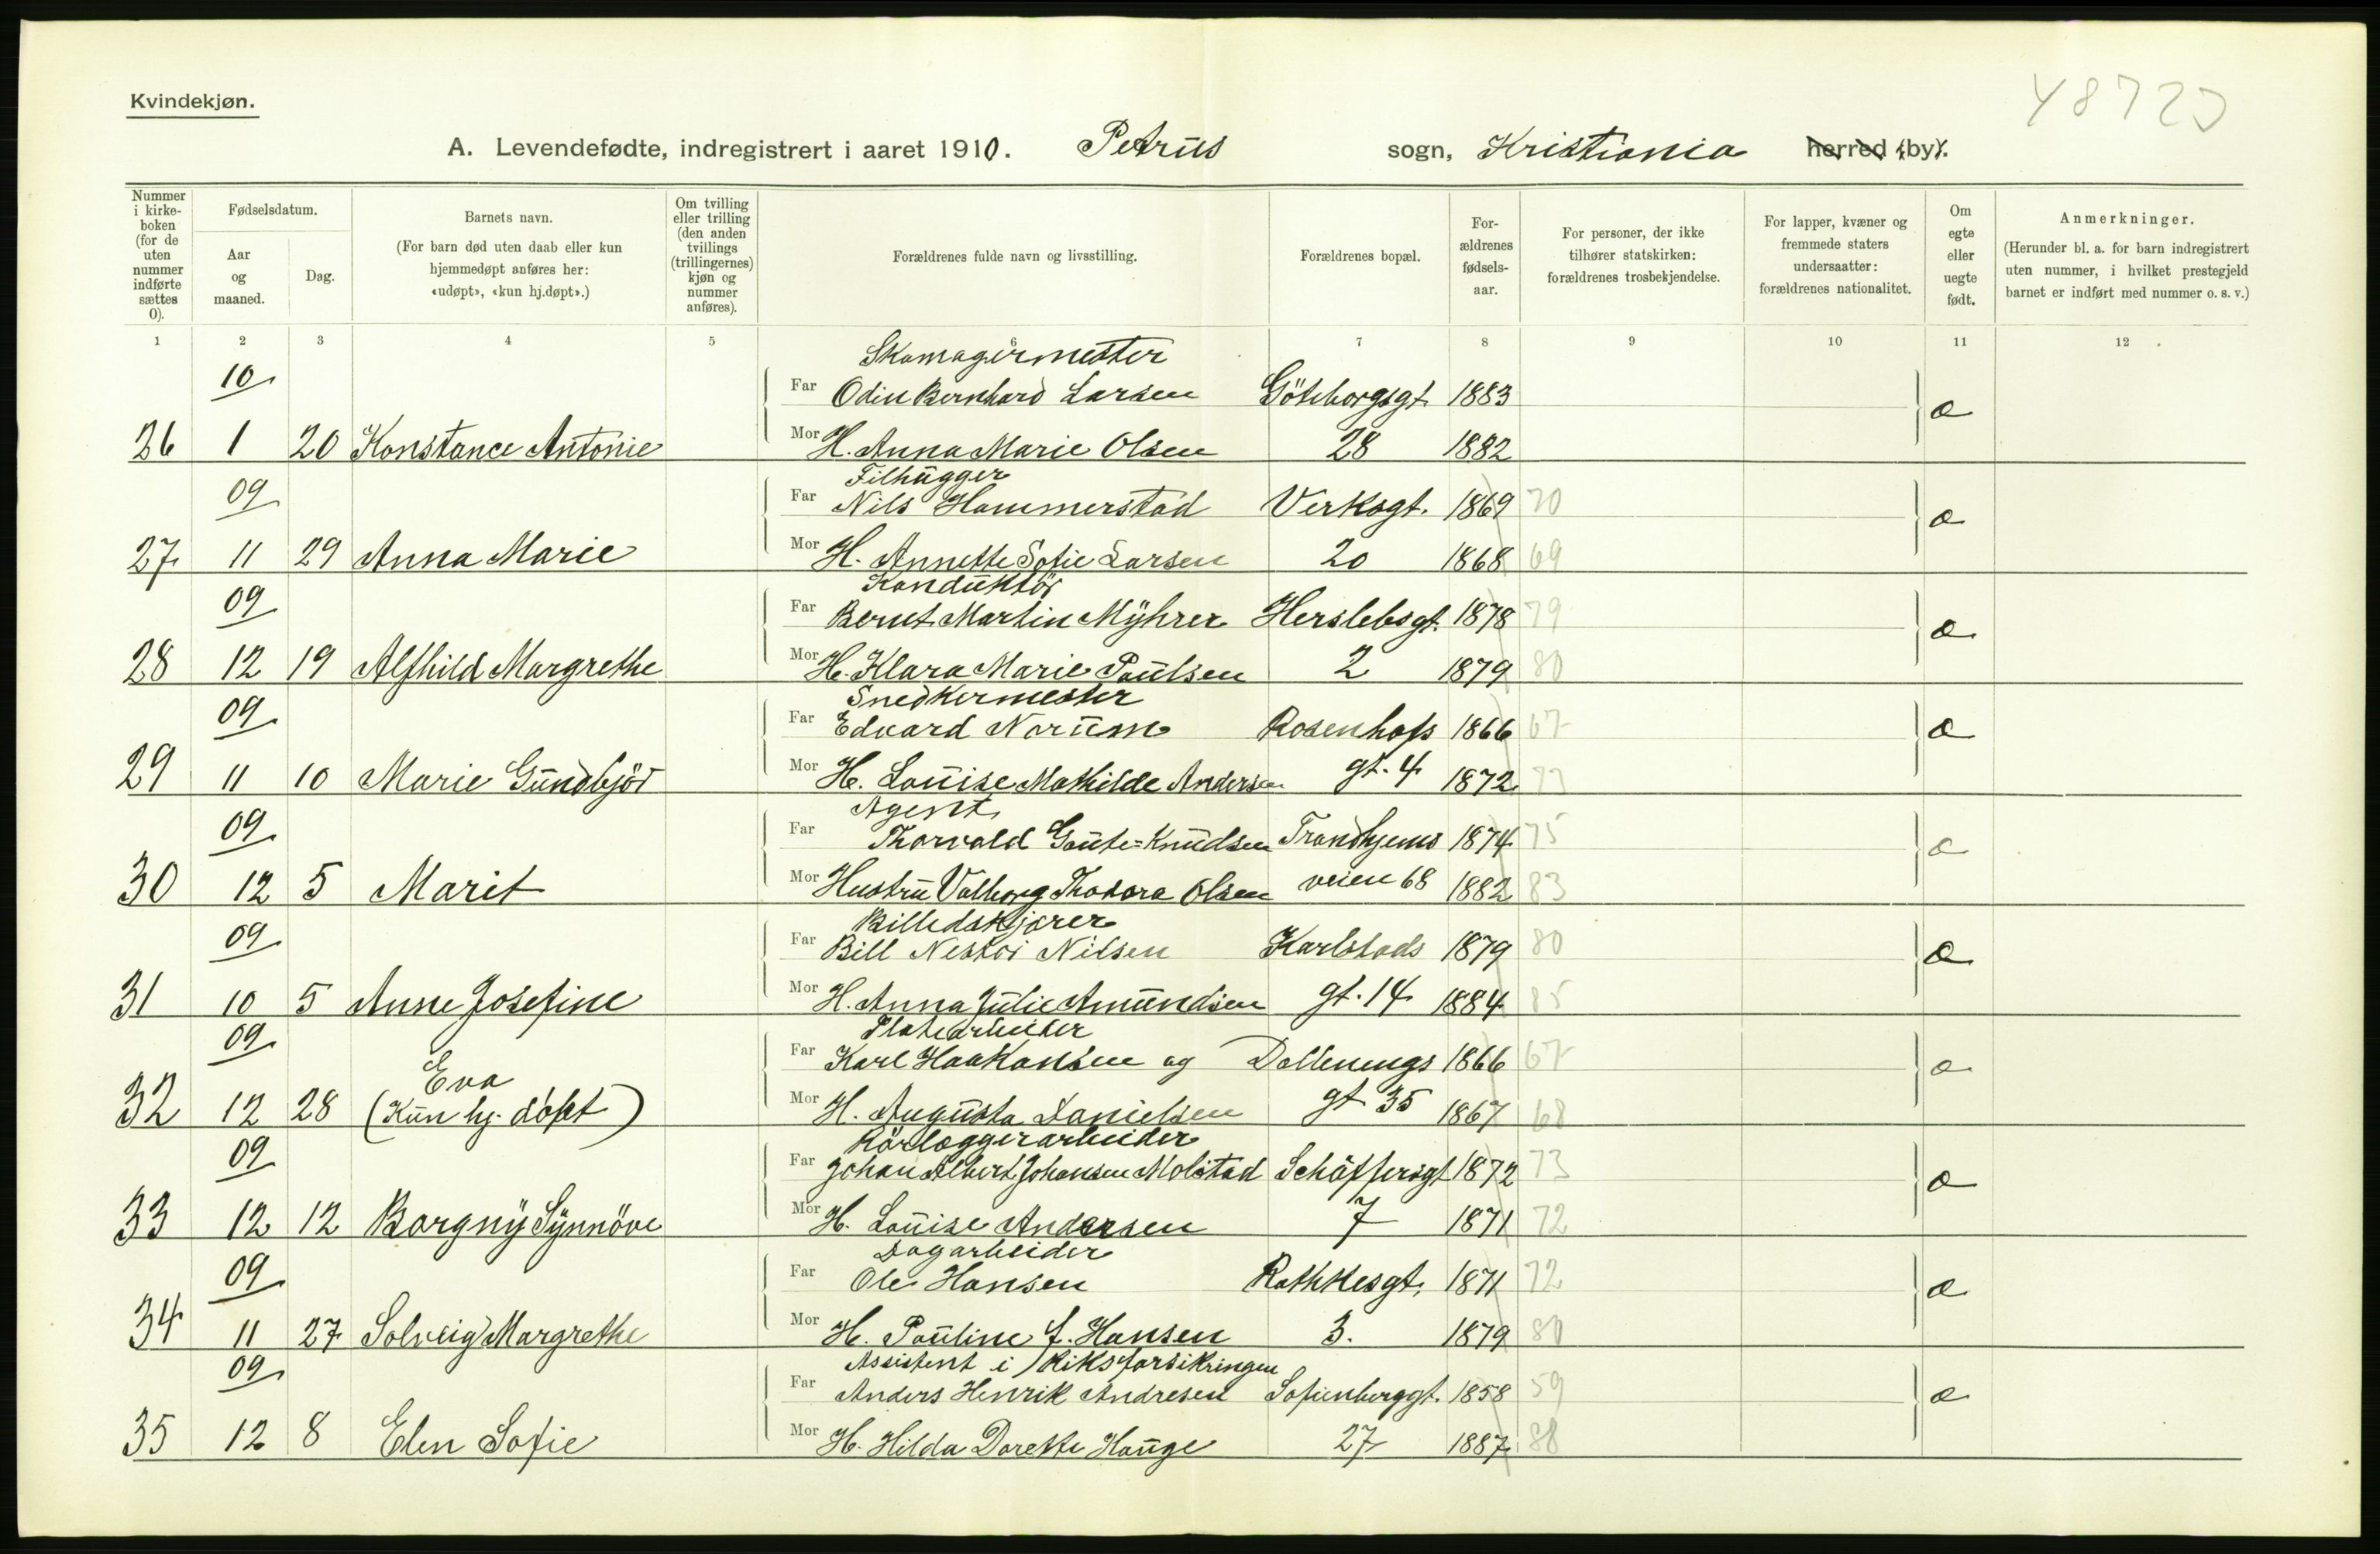 Kvindekjøn.
48723
A. Levendefødte, indregistrert i aaret 1910. Petrus sogn, Kristiania herred (by).
Nummer i kirke-boken (for de uten nummer indførte sættes 0).
Fødselsdatum.
Aar og maaned.
Dag.
Barnets navn.
(For barn død uten daab eller kun hjemmedøpt anføres her: «udøpt», «kun hj.døpt».)
Om tvilling eller trilling (den anden tvillings (trillingernes) kjøn og nummer anføres).
Forældrenes fulde navn og livsstilling.
Forældrenes bopæl.
For-ældrenes fødsels-aar.
For personer, der ikke tilhører statskirken: forældrenes trosbekjendelse.
For lapper, kvæner og fremmede staters undersaatter: forældrenes nationalitet.
Om egte eller uegte født.
Anmerkninger.
(Herunder bl. a. for barn indregistrert uten nummer, i hvilket prestegjeld barnet er indført med nummer o. s. v.)
1 2 3 4 5 6 7 8 9 10 11 12
Skomagermester
10 Far Odin Bernhard Larsen Göteborgsgt. 1883
26 1 20 Konstance Antonie Mor H. Anna Marie Olsen 28 1882
Filhugger
09 Far Nils Hammerstad Verksgt. 1869 70
27 11 29 Anna Marie Mor H. Annette Sofie Larsen 20 1868 69
Konduktör
09 Far Bernt Martin Myhrer Herslebsgt. 1878 79
28 12 19 Alfhild Margrethe Mor H. Klara Marie Paulsen 2 1879 80
Snedkermester
09 Far Edvard Norum Rosenhofs 1866 67
29 11 10 Marie Gundbjör Mor H. Louise Mathilde Andersen gt. 4 1872 73
Agent
09 Far Thorvald Gaute=Knudsen Trondhjems 1874 75
30 12 5 Marit Mor Hustru Valborg Thodora Olsen veien 68 1882 83
Billedskjærer
09 Far Bill Nestor Nilsen Karlstads 1879 80
31 10 5 Anne Josefine Mor H. Anna Julie Amundsen gt. 14 1884 85
Platearbeider
09 Far Karl Haakonsen og Dællenengs 1866 67
Eva
32 12 28 (Kun hj. døbt) Mor H. Augusta Danielsen gt 35 1867 68
Rörlæggerarbeider
09 Far Johan Albert Johansen Molstad Schäffersgt 1872 73
33 12 12 Borgny Synnöve Mor H. Louise Andersen 7 1871 72
Dagarbeider
09 Far Ole Hansen Rathkesgt. 1871 72
34 11 27 Solveig Margrethe Mor H. Pauline f. Hansen 3. 1879 80
Assistent i Riksforsikringen
09 Far Anders Henrik Andresen Sofienberggt. 1858 59
35 12 8 Elen Sofie Mor H. Hilda Dorette Hauge 27 1887 88